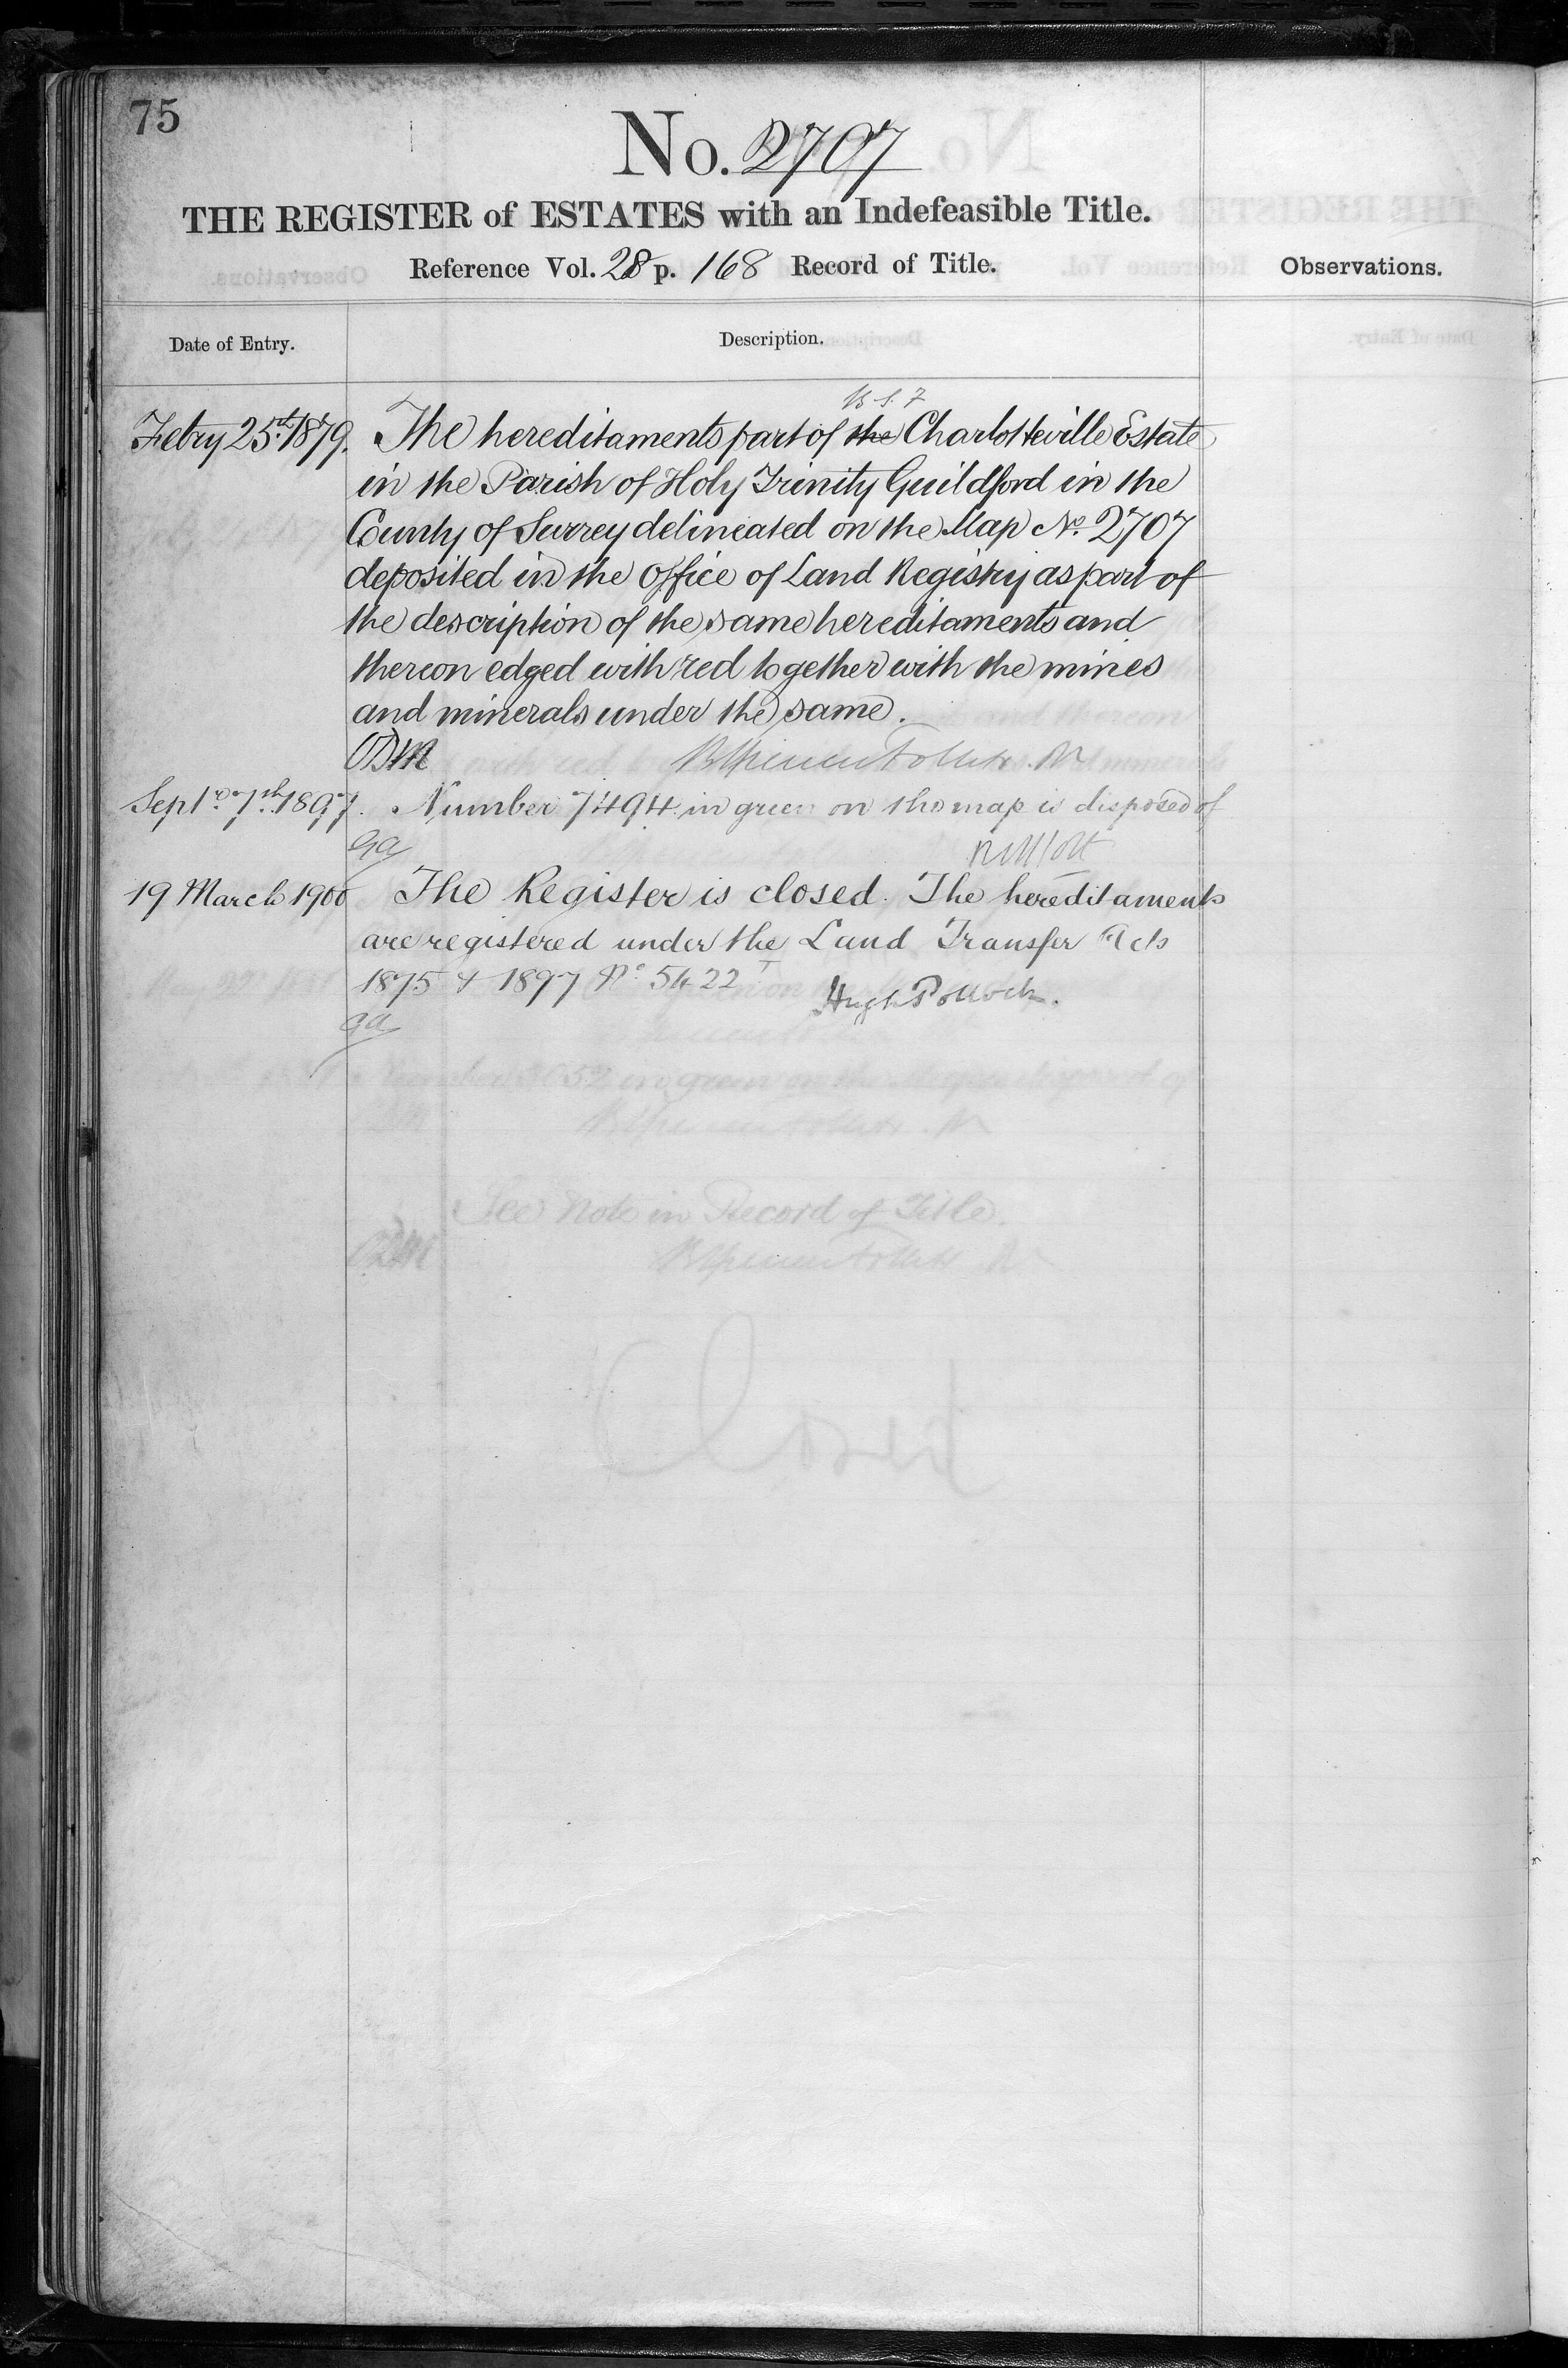 75
No. 2707
THE REGISTER of ESTATES with an Indefeasible Title.
Reference Vol. 28 p. 168 Record of Title.
Observations.
Date of Entry.
Description.
B. S. F
Febry 25th 1879. The hereditaments part of the Charlotteville Estate
in the Parish of Holy Trinity Guildford in the
County of Surrey delineated on the Map No. 2707
deposited in the office of Land Registry as part of
the description of the same hereditaments and
thereon edged with red together with the mines
and minerals under the same.
Septr 7th 1897. Number 7494 in green on the map is disposed of
GA
19 March 1900 The Register is closed. The hereditaments
are registered under the Land Transfer Acts
1875 & 1897 No 5422
Hugh Pollock.
GA
See Note in Record of Title.
Closed